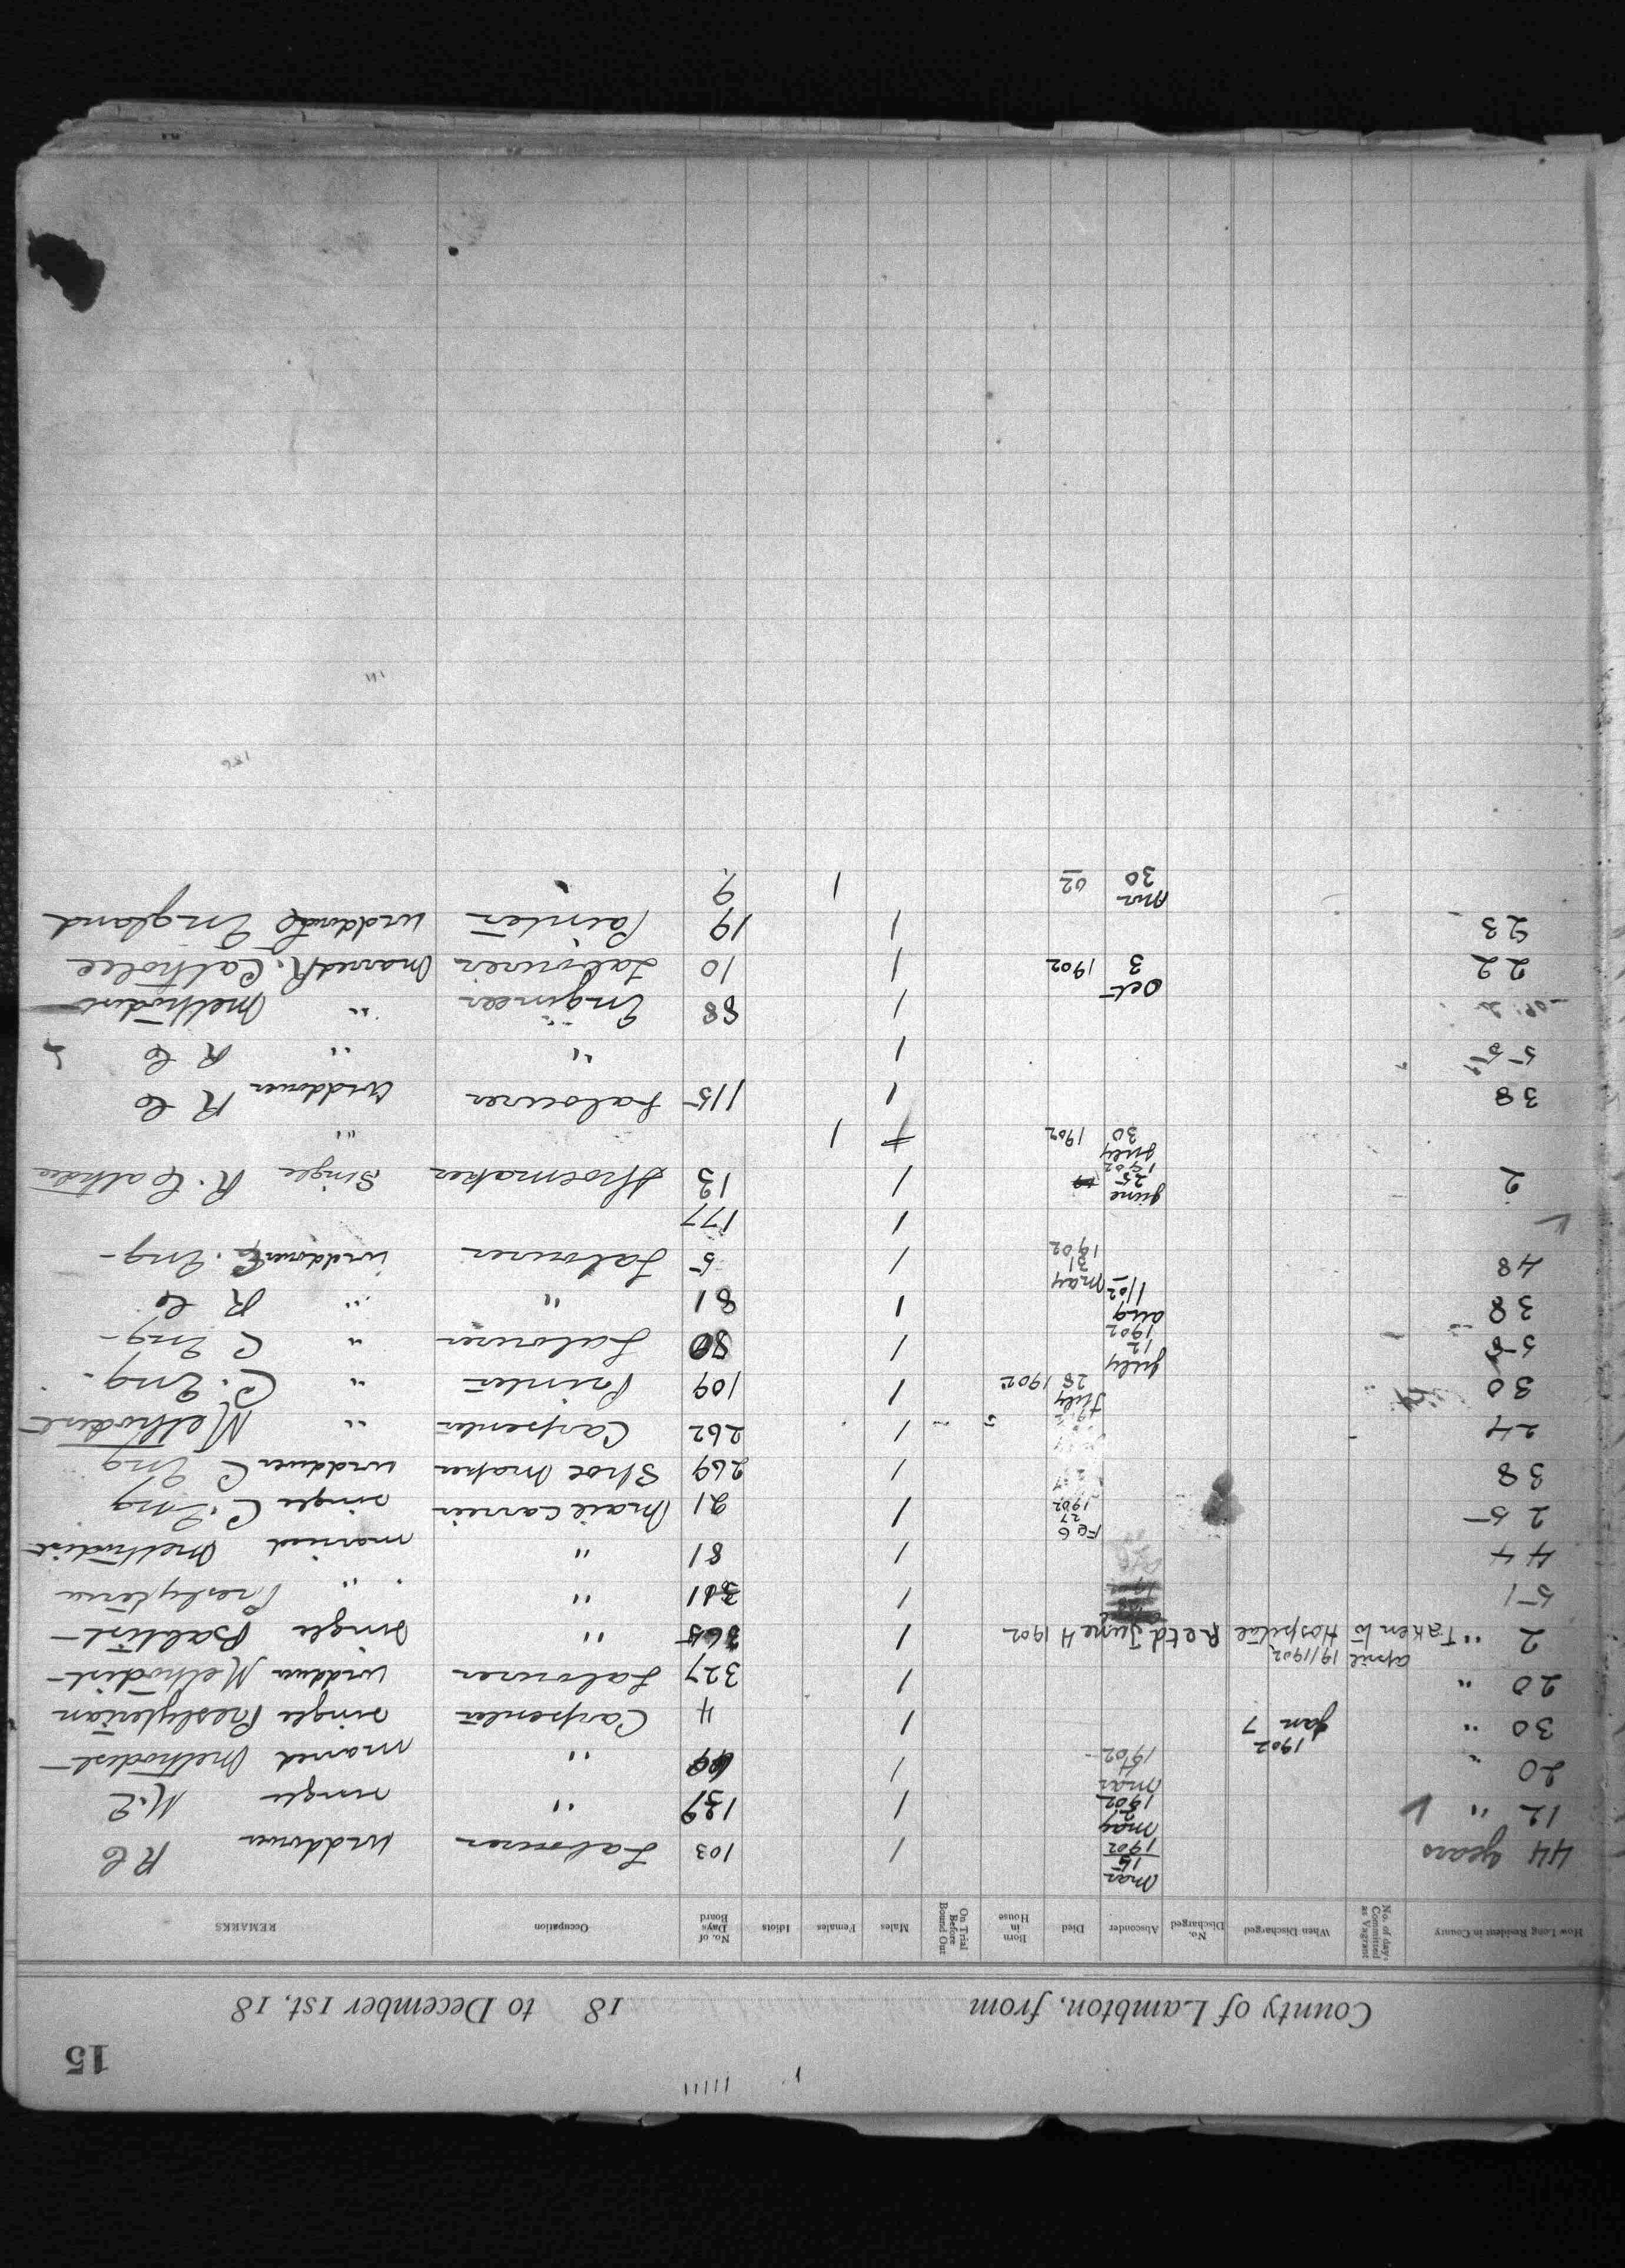 15
County of Lambton, from 18 to December 1st, 18
How Long Resident in County No. of days Committed as Vagrant When Discharged No. Discharged Absconder Died Born in House On Trial Before Bound Out Males Females Idiots No. of Days Board Occupation REMARKS
44 years Mar 15 1902 1 103 Labourer widdower R C
12 " May 1902 1 " single
20 " Mar 1902 1 " married Methodist
30 " Jan 7 1902 1 4 Carpenter single Presbyterian
20 " 1 327 Labourer widdwr Methodist
2 " Taken to Hospital april 19/1902 Retd June 4 1902 1 365 " single Babtist
51 1 311 " " Presbyterian
44 1 81 " married Methodist
25 Feb 27 1902 1 21 Mail Carrier single C. Eng
38 1 269 Shoe Maker widdwer C Eng
24 1 262 Carpenter " Methodist
30 July 28 1902 1 109 Printer " C. Eng.
55 July 12 1902 1 80 Labourer " C Eng
38 Aug 11/02 1 81 " " R C
48 May 31 1902 1 5 Labourer widdower C. Eng
1 177
2 June 25 1902 1 13 Shoemaker Single R. Catholic
July 30 1902 1 "
38 1 115 Labourer Widdower R C
55 1 " " R C
1 88 Engineer " Methodist
22 Oct 3 1902 1 10 Labourer Married R. Catholic
23 1 19 Painter widdow England
30 02 1 9